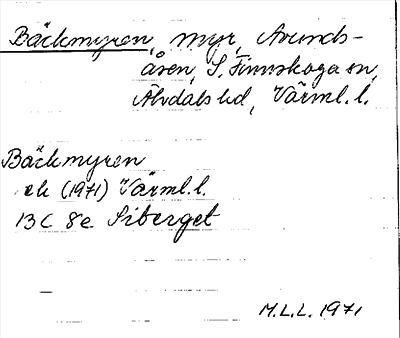 Bäckmyren, myr, Avunds-
åsen, S. Finnskoga sn,
Älvdals hd, Värml. l.
Bäckmyren
ek (1971) Värml. l.
13C 8e Siberget
M.L.L. 1971